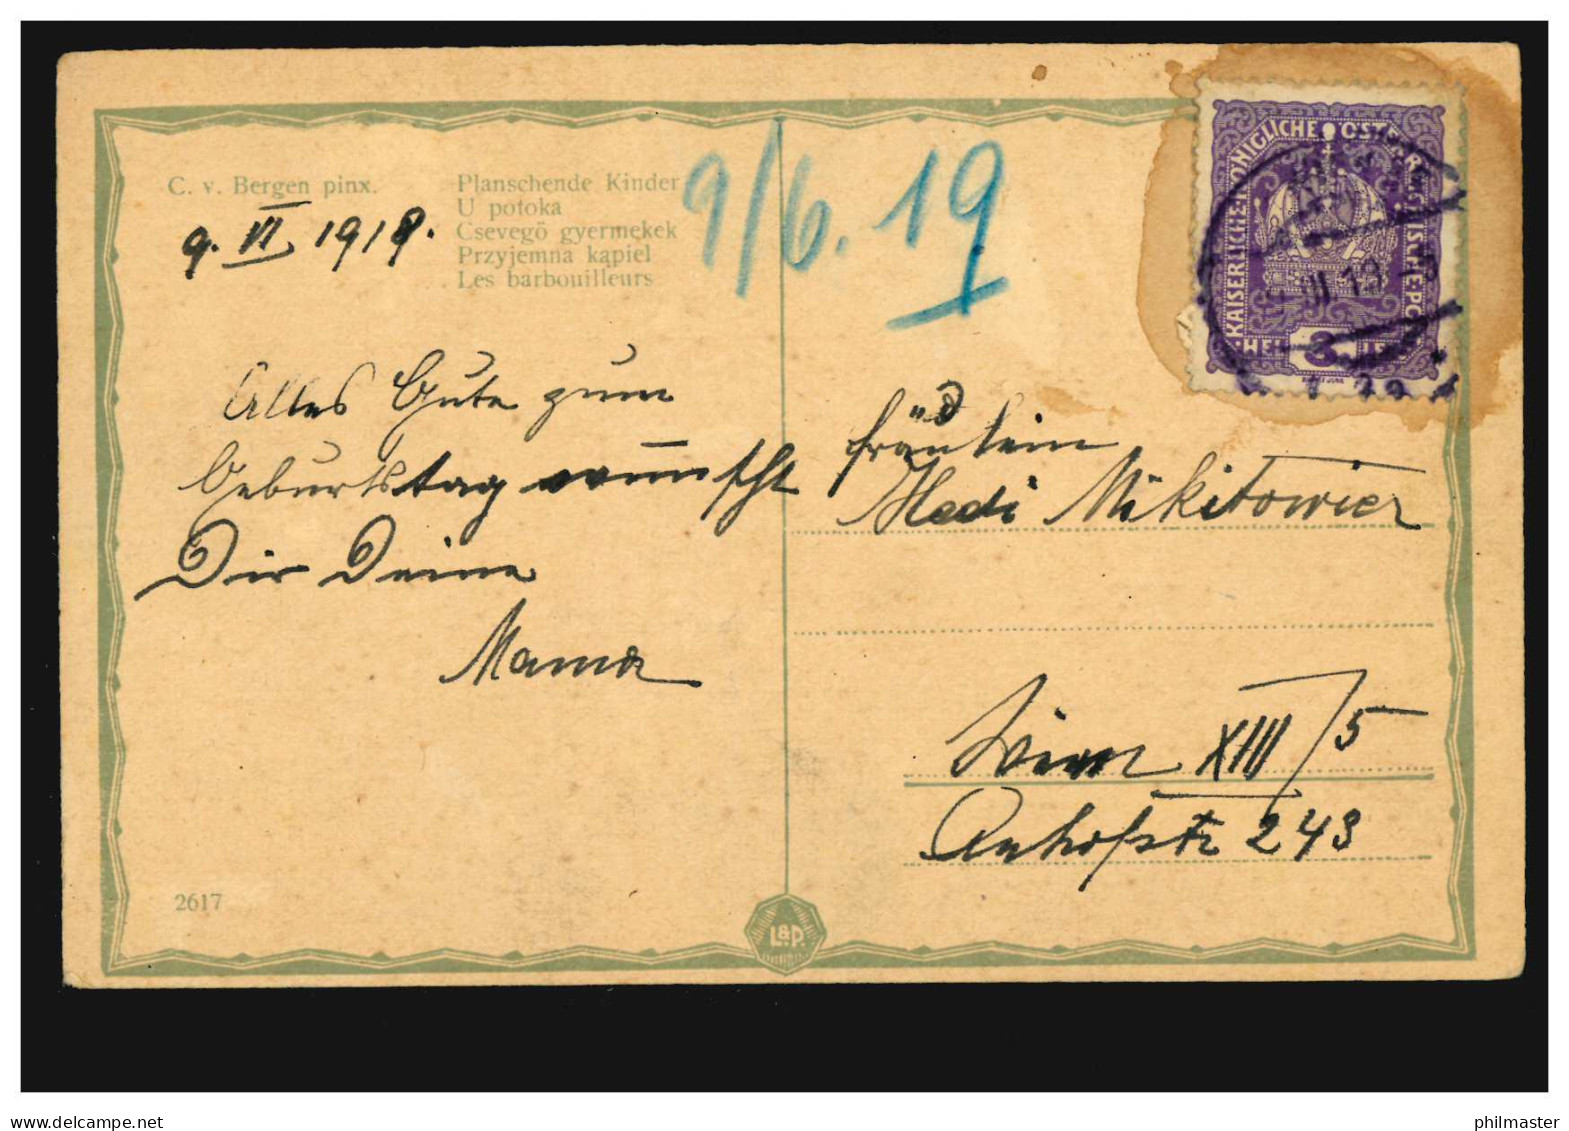 C. v. Bergen pinx.
Planschende Kinder
U potoka
Csevegö gyermekek
Przyjemna kąpiel
Les barbouilleurs
9. VI 1919.
9/6. 19
KAISERLICHE KÖNIGLICHE ÖSTERREICHISCHE POST
3
19
Alles Gute zum
Geburtstag wünscht
Dir Deine
Mama
Fräulein
Hedi Mikitowicz
Wien XIII/5
243
2617
L&P.
philmaster